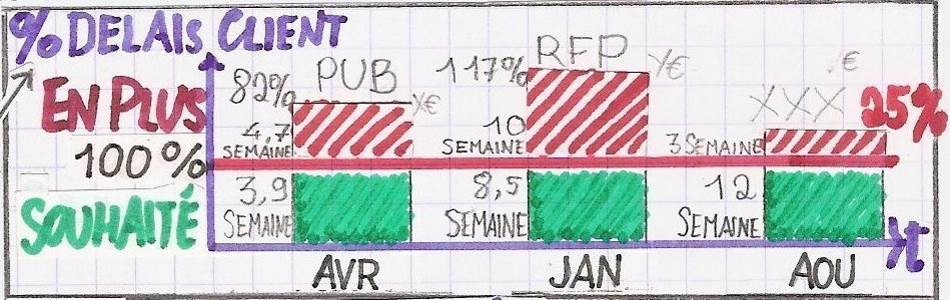 % DELAIS CLIENT
EN PLUS
100%
SOUHAITÉ
82%
PUB
X€
4,7
SEMAINE
3,9
SEMAINE
AVR
117%
RFP
X€
10
SEMAINE
8,5
SEMAINE
JAN
XXX
€
25%
3 SEMAINE
12
SEMAINE
AOU
t